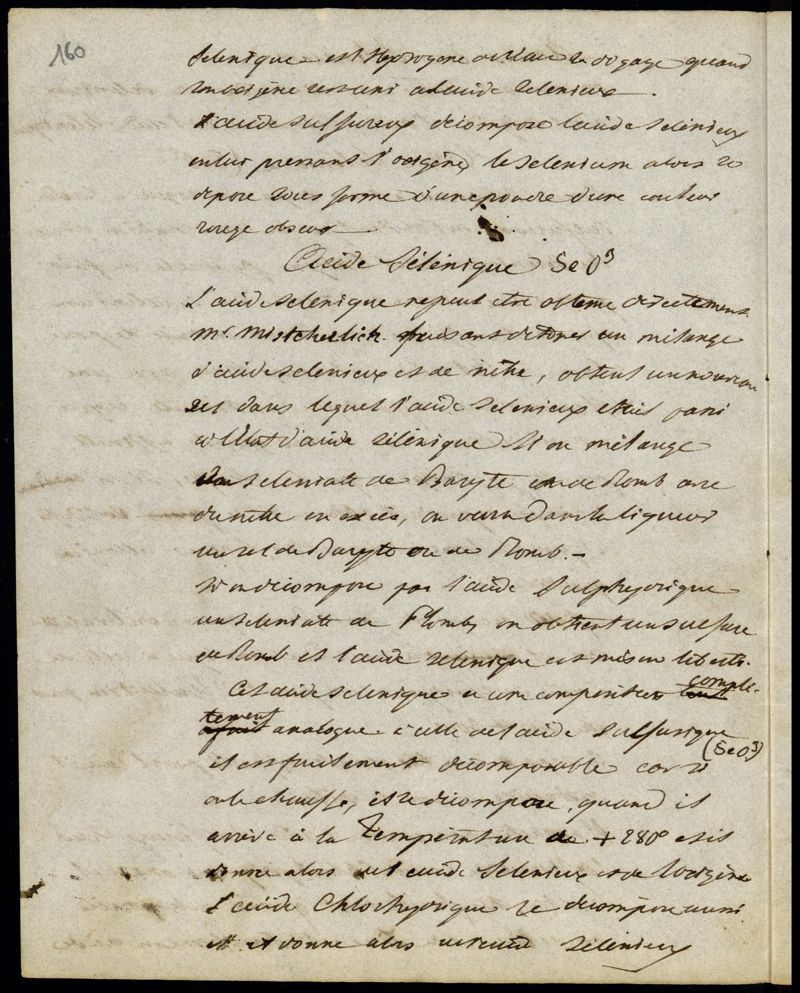 160
Selenique est Hydrogene de l'eau se dégage quand
son oxigène est uni a l'acide selenieux.
L'acide sulfureux décompose l'acide selénieux
en lui prenant l'oxigène, le selenium alors se
dépose sous forme d'une poudre d'une couleur
rouge obscur
Acide Sélénique Se O³
L'acide selenique ne peut etre obtenu directement.
Mr Mistcherlich. faisant détoner un mélange
d'acide selenieux et de nitre, obtint un nouveau
sel dans lequel l'acide selenieux etait passé
a l'état d'acide sélénique Si on mélange
seleniate de Baryte ou de Plomb avec
du nitre en excès, on verra dans la liqueur
un sel de Baryte ou de Plomb. —
Si on décompose par l'acide Sulphydrique
un seleniate de Plomb, on obtient un sulfure
de Plomb et l'acide selenique est mis en liberté.
Cet acide selenique a une composition tout complè-
tement a fait analogue à celle de l'acide Sulfurique
(Se O³)
il est facilement décomposable car si
on le chauffe, il se décompose, quand il
arrive à la Température de + 280° et il
donne alors de l'acide Selenieux et de l'oxigène
L'acide Chlorhydrique le décompose aussi
et donne alors acide Selénieux